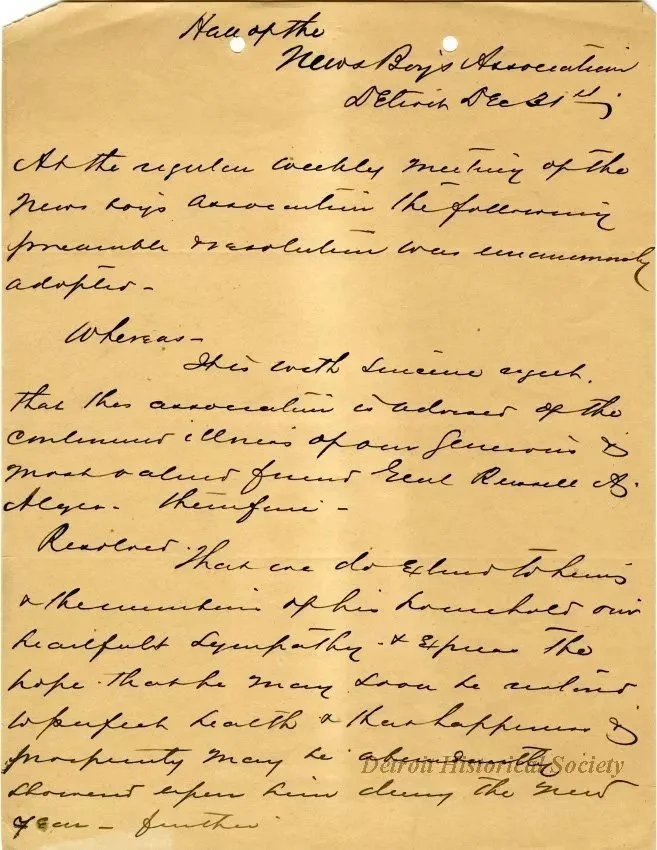 Hall of the
News Boys Association
Detroit Dec 31st
At the regular weekly meeting of the
News boys association the following
preamble & resolution was unanimously
adopted -
Whereas -
It is with sincere regret.
that this association is advised of the
continued illness of our generous &
most valued friend Genl Russell A.
Alger - therefore -
Resolved. That we do extend to him
& the members of his household our
heartfelt sympathy - & express the
hope that he may soon be restored
to perfect health & that happiness &
prosperity may be abundantly
showered upon him during the new
year - further
Detroit Historical Society